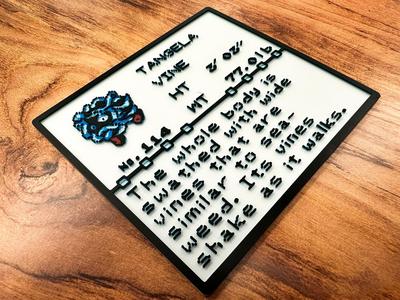 TANGELA
VINE
HT 2'02"
WT 77.0lb
No.114
The whole body is
swathed with wide
vines that are
similar to sea-
weed. Its vines
shake as it walks.